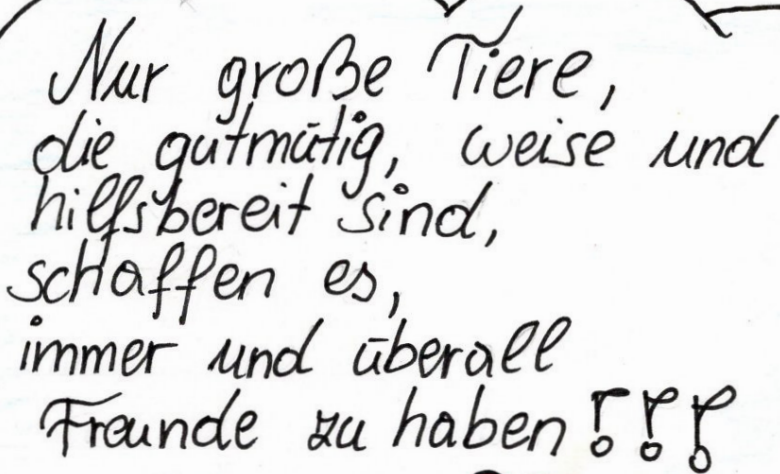 Nur große Tiere,
die gutmütig, weise und
hilfsbereit sind,
schaffen es,
immer und überall
Freunde zu haben!!!